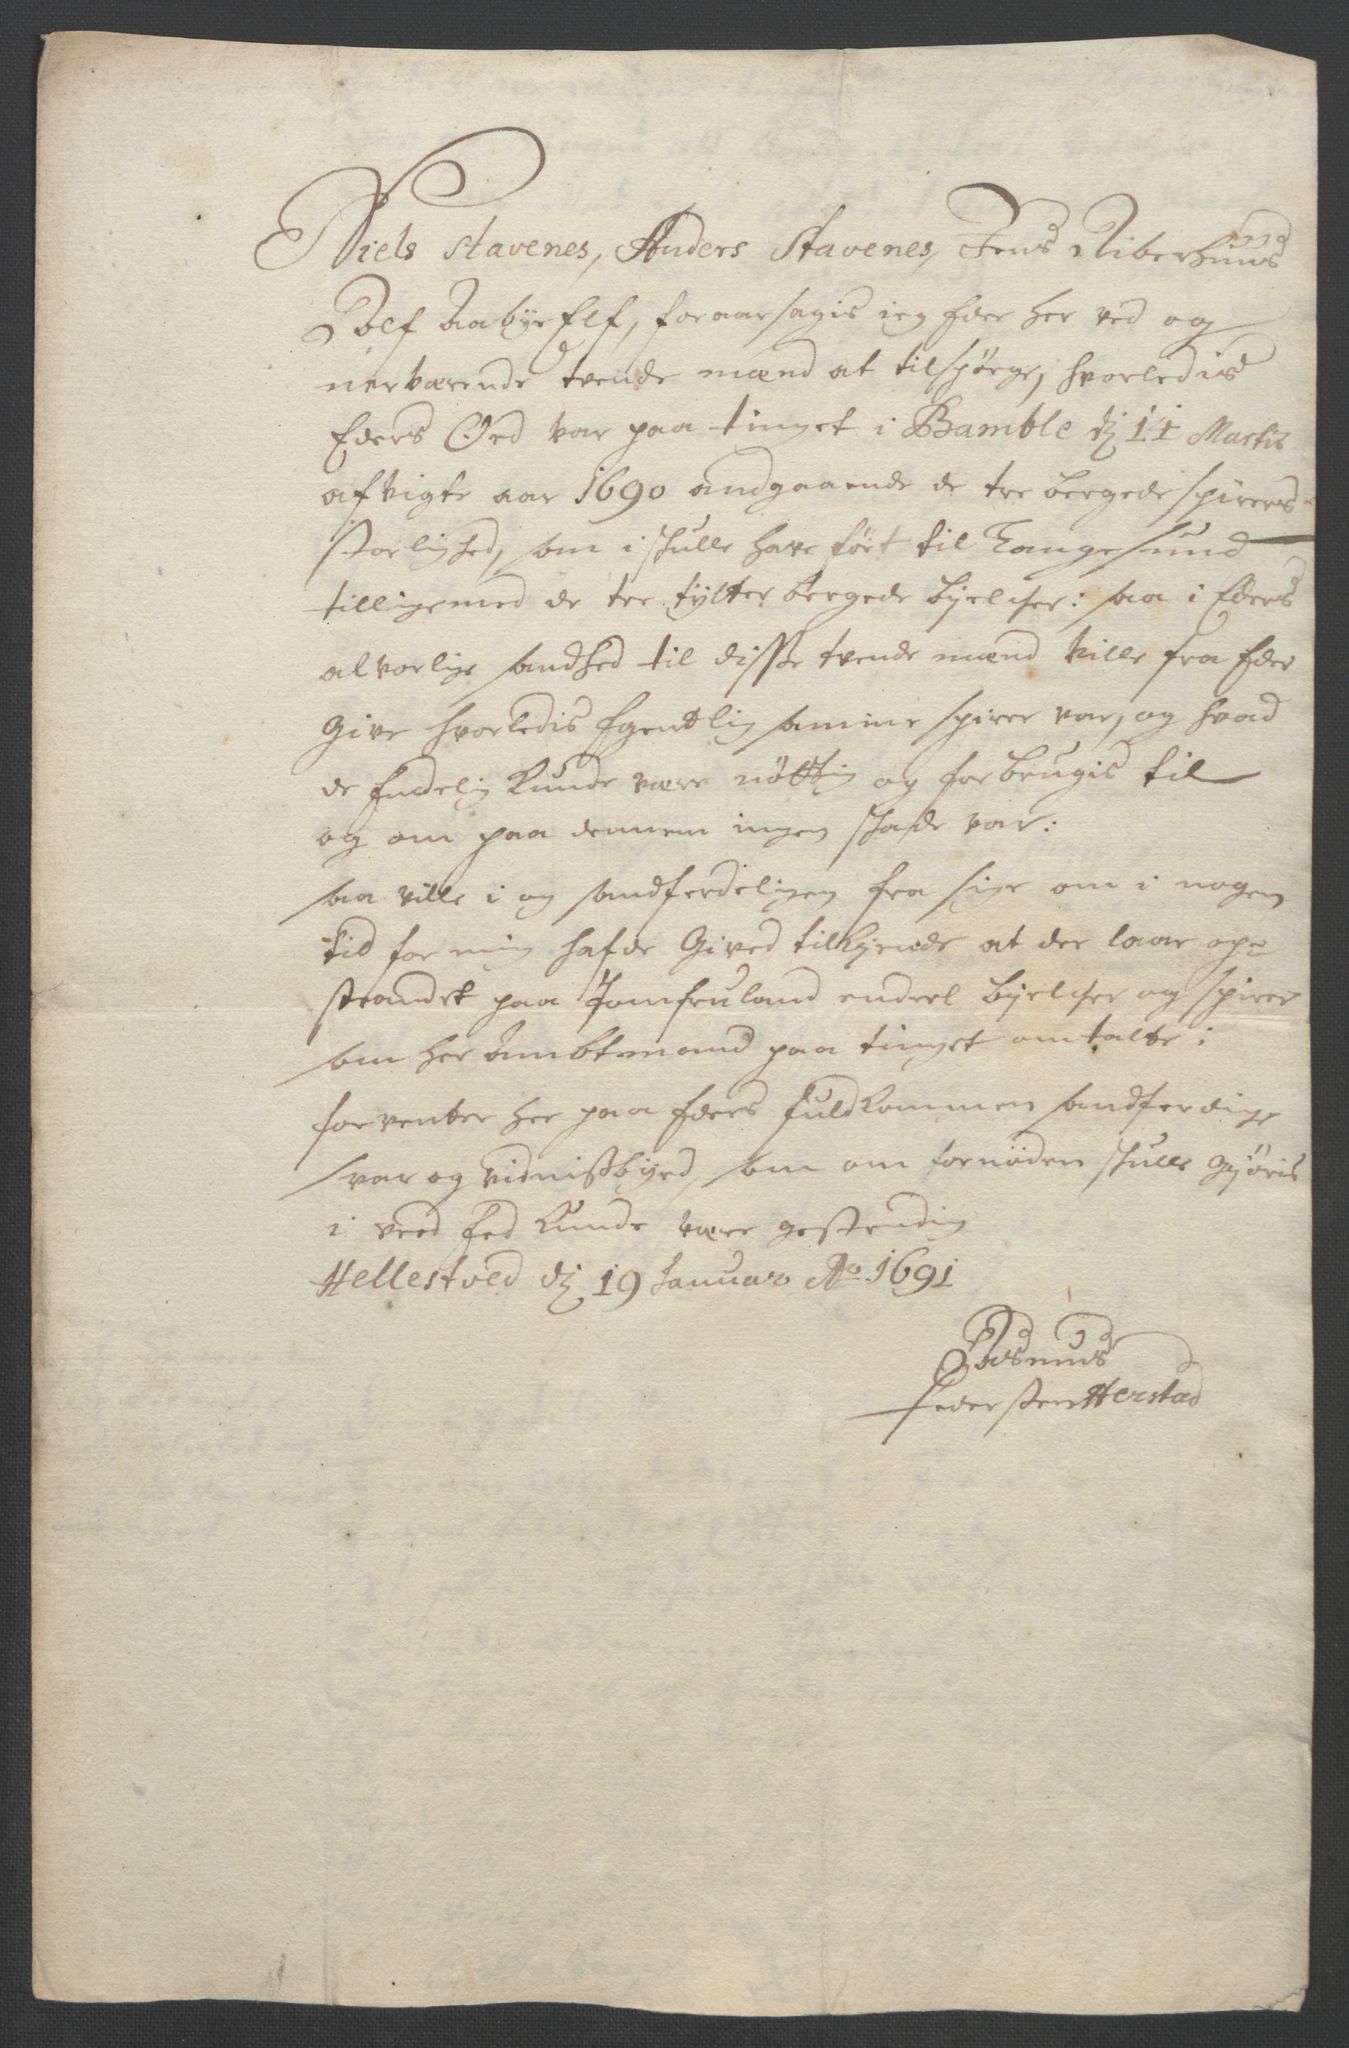 Niels Stavenes, Anders Stavenes, Jens Riberhuus
Rolf Aabye Elf, foraarsagis ieg Eder her ved og
nerværende tvende mænd at tilspörge, hvorledis
Eders Ord var paa tinget i Bamble dj 11 Martis
afvigte aar 1690 andgaaende de tre bergede spirers
storlighed, som i skulle have fört til Langesund
tilligemed de tre tylter bergede bjelcher: saa i Eders
alvorlige sandhed til disse tvende mænd ville fra Eder
Give hvorledis Egentlig samme spirer var, og hvad
de Endelig kunde være nöttig og forbrugis til
og om paa dennem ingen skade var:
saa ville i og sandferdeligen fra sige om i nogen
tid for mig hafde Gived tilkjende at der laae op=
strandet paa Jomfruland endeel bjelcher og spirer
som her Ambtmand paa tinget omtalte:
forventer her paa Eders fuldkommen sandferdige
svar og vidnißbyrd, som om fornöden skulle Gjöris
i veed Eed kunde være gestendig
Hellestved dj 19 Januar Ao 1691
Rasmus
Pedersen Herstad